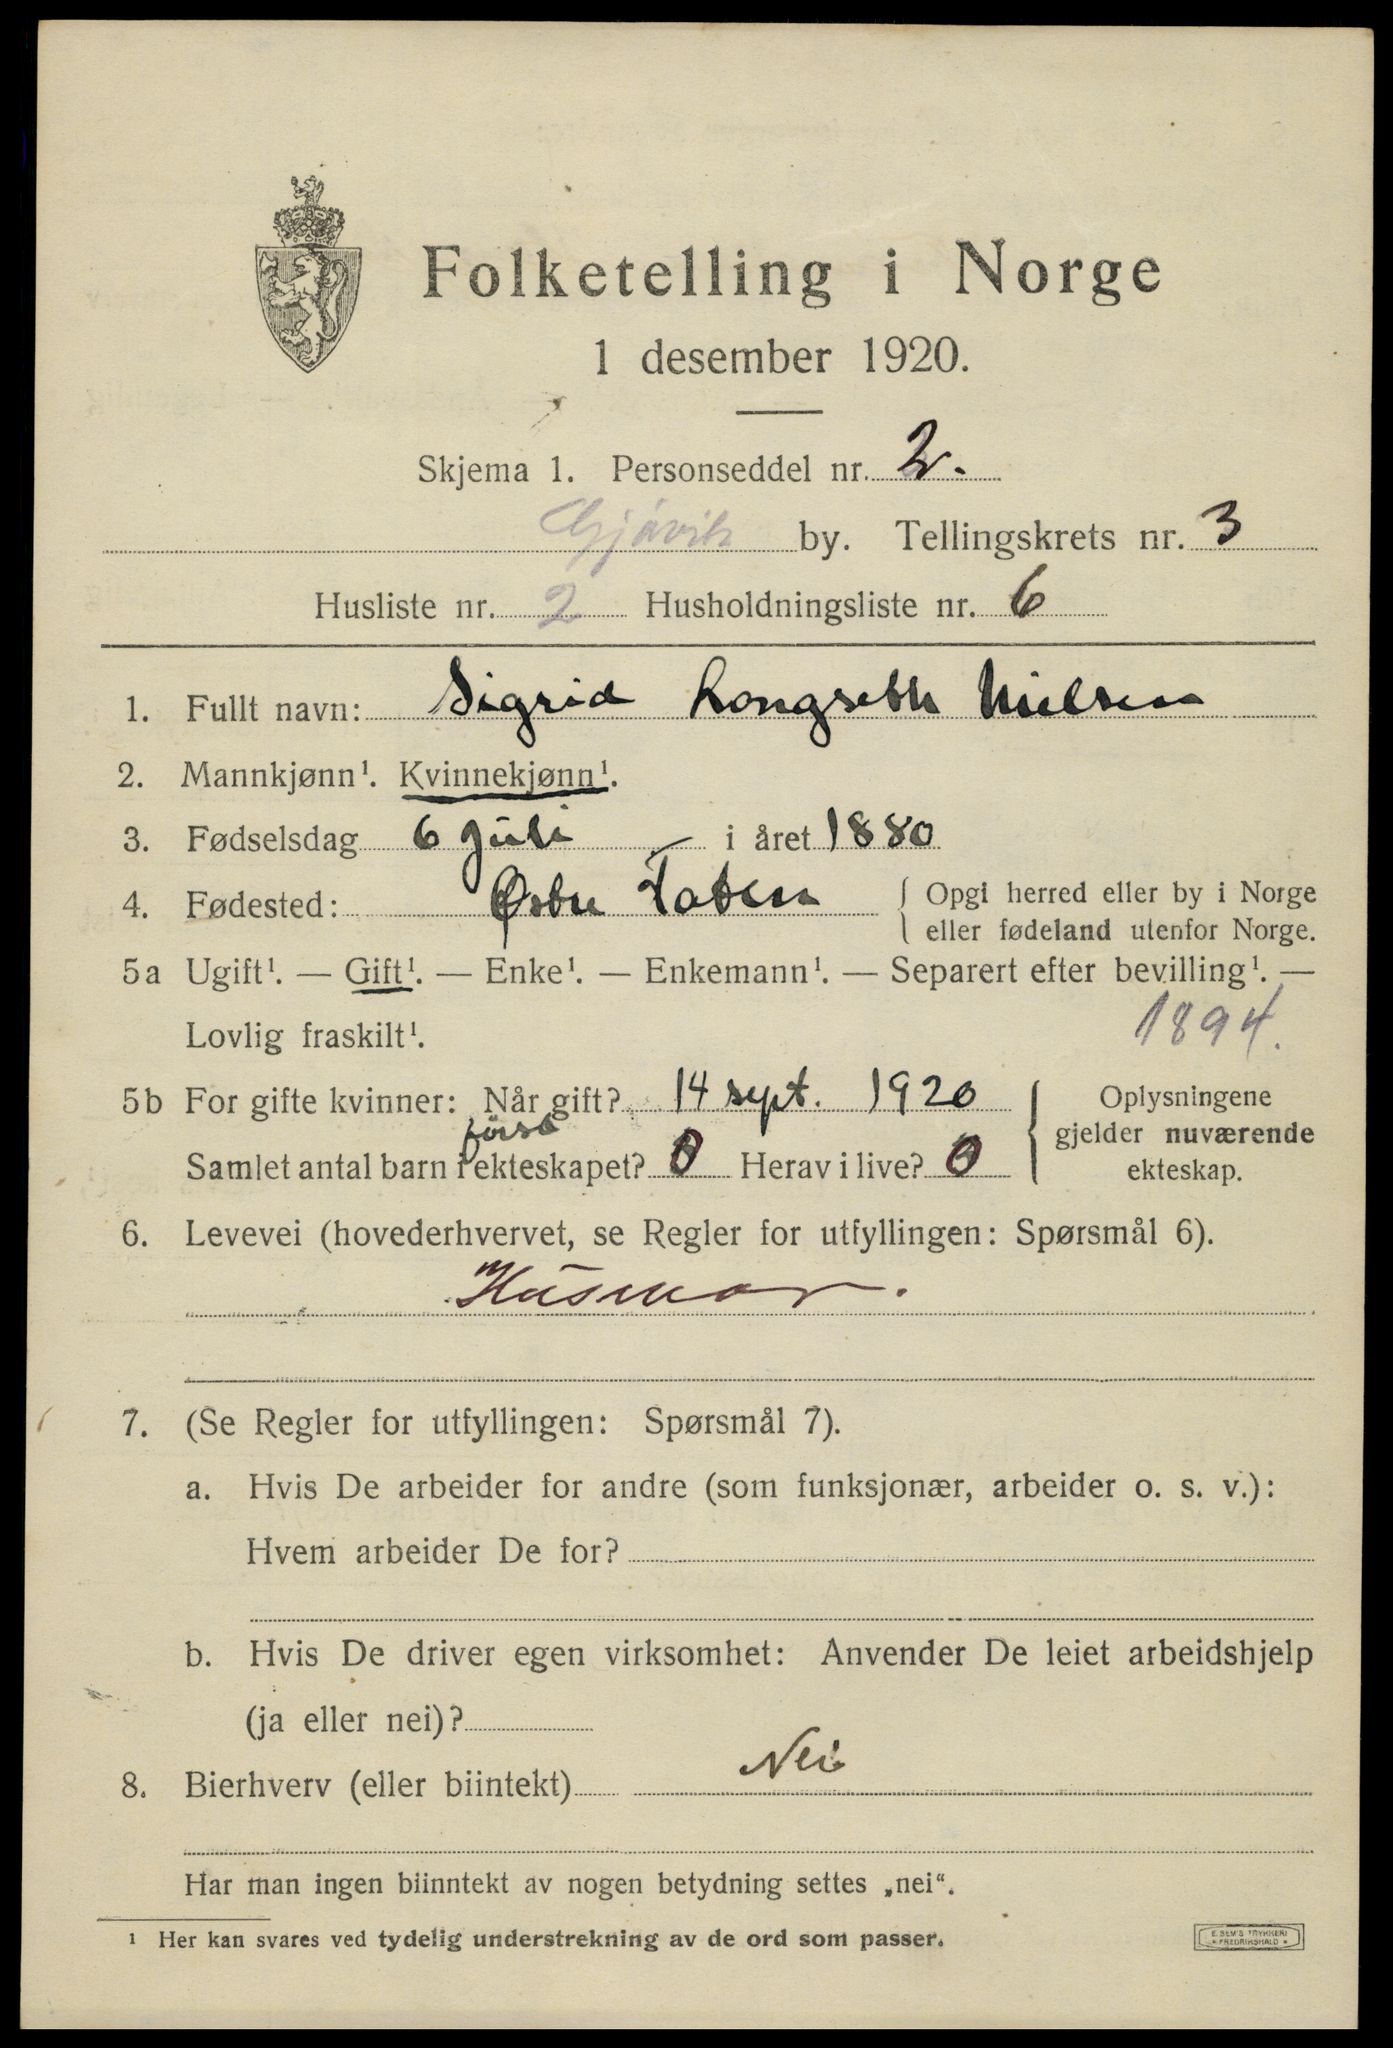 Folketelling i Norge
1 desember 1920.
Skjema 1. Personseddel nr. 2.
Gjøvik by. Tellingskrets nr. 3
Husliste nr. 2 Husholdningsliste nr. 6
1. Fullt navn: Sigrid Longseth Nielsen
2. Mannkjønn¹. Kvinnekjønn¹.
3. Fødselsdag 6 Juli i året 1880
4. Fødested: Østre Toten { Opgi herred eller by i Norge
eller fødeland utenfor Norge.
5a Ugift¹. — Gift¹. — Enke¹. — Enkemann¹. — Separert efter bevilling¹. —
Lovlig fraskilt¹. 1894.
5b For gifte kvinner: Når gift? 14 sept. 1920
først
Samlet antal barn i ekteskapet? 0 Herav i live? 0
Oplysningene
gjelder nuværende
ekteskap.
6. Levevei (hovederhvervet, se Regler for utfyllingen: Spørsmål 6).
Husmor.
7. (Se Regler for utfyllingen: Spørsmål 7).
a. Hvis De arbeider for andre (som funksjonær, arbeider o. s. v.):
Hvem arbeider De for?
b. Hvis De driver egen virksomhet: Anvender De leiet arbeidshjelp
(ja eller nei)?
8. Bierhverv (eller biintekt) Nei
Har man ingen biinntekt av nogen betydning settes „nei“.
¹ Her kan svares ved tydelig understrekning av de ord som passer.
E. SEM'S TRYKKERI
* FREDRIKSHALD *